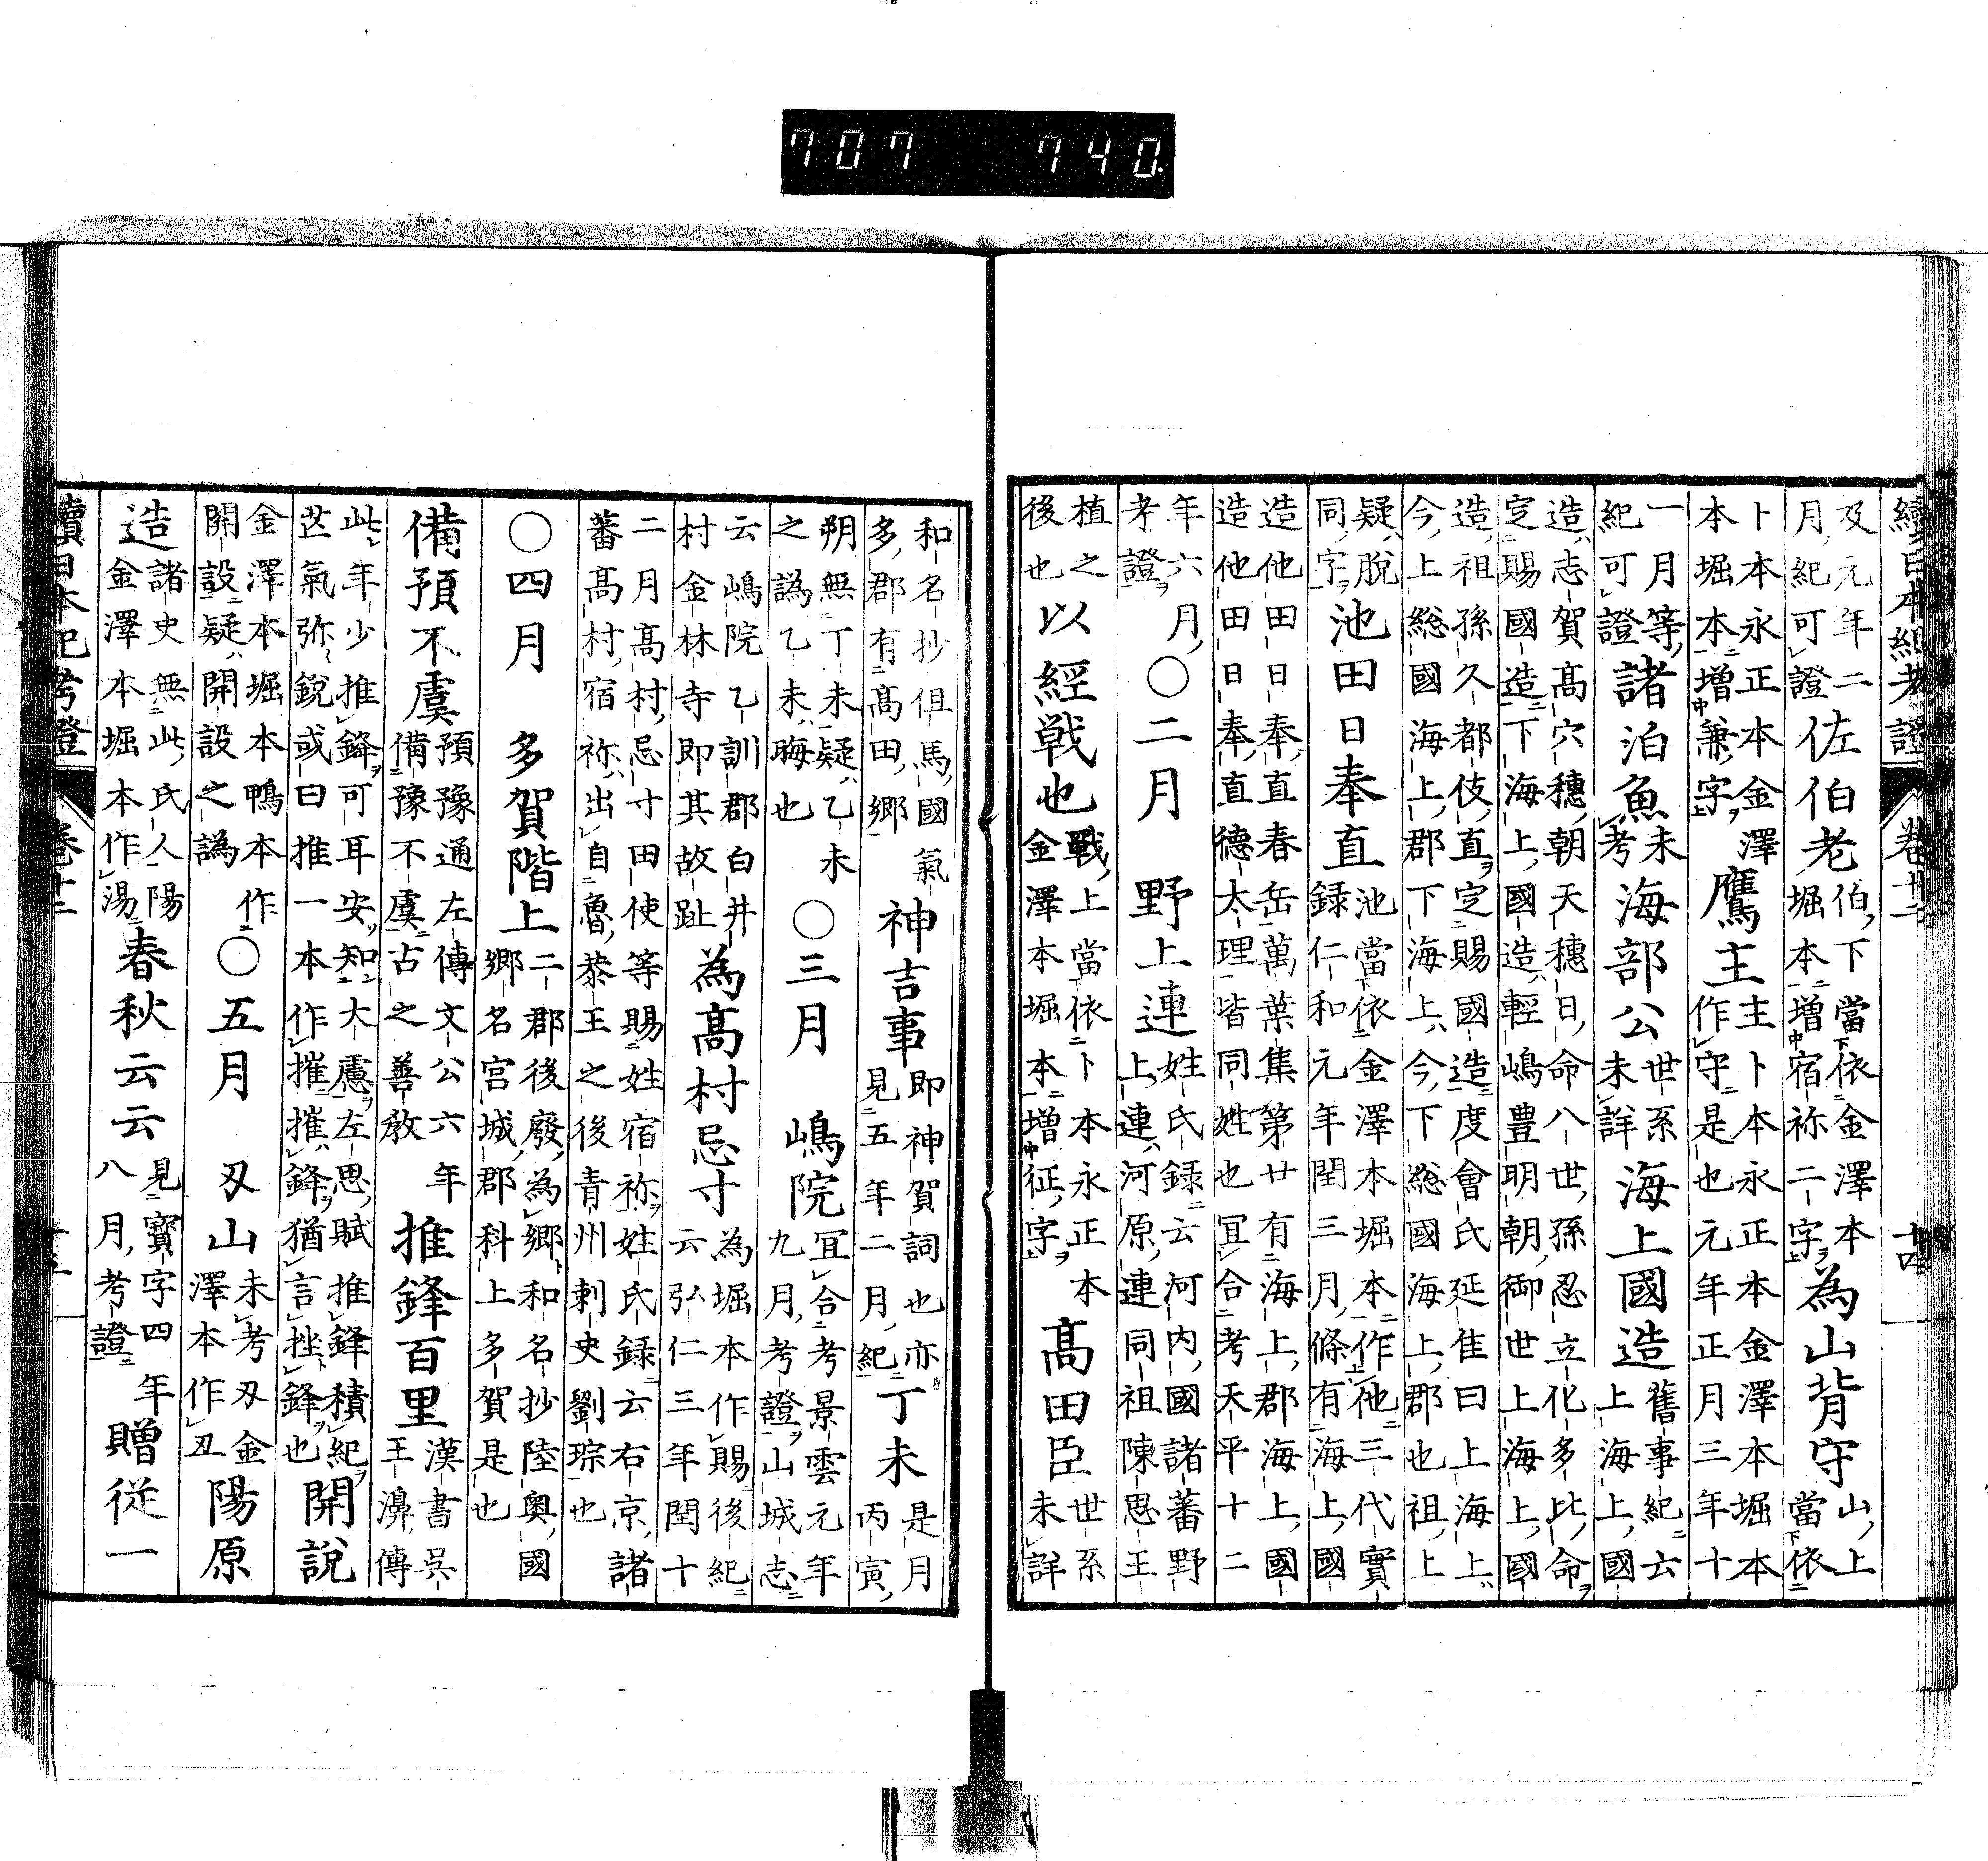 707 740.
續日本紀考證 卷十二 十四
及元年二月紀可證 佐伯老 伯下當依金澤本堀本增宿祢二字 為山背守 山上當依
卜本永正本金澤本堀本增兼字 鷹主 主卜本永正本金澤本堀本作守是也元年正月三年十
一月等紀可證 諸泊魚 未考 海部公 世系未詳 海上國造 舊事紀云上海上國
造志賀高穴穗朝天穗日命八世孫忍立化多比命定賜國造下海上國造輕嶋豊明朝御世上海上國
造祖孫久都伎直定賜國造度會氏延佳曰上海上今上総國海上郡下海上今下総國海上郡也祖上
疑脱同字 池田日奉直 池當依金澤本堀本作他三代實録仁和元年閏三月條有海上國
造他田日奉直春岳萬葉集第廿有海上郡海上國造他田日奉直德太理皆同姓也宜合考天平十二
年六月考證 〇二月 野上連 姓氏録云河内國諸蕃野上連河原連同祖陳思王
植之後也 以經戦也 戰上當依卜本永正本金澤本堀本增征字 髙田臣 世系未詳
和名抄但馬國氣多郡有髙田郷 神吉事 即神賀詞也亦見五年二月紀 丁未 是月丙寅
朔無丁未疑乙未之譌乙未晦也 〇三月 嶋院 宜合考景雲元年九月考證山城志
云嶋院乙訓郡白井村金林寺即其故趾 為髙村忌寸 為堀本作賜後紀云弘仁三年閏十
二月髙村忌寸田使等賜姓宿祢姓氏録云右京諸蕃髙村宿祢出自魯恭王之後青州刺史劉琮也
〇四月 多賀階上 二郡後廢為郷和名抄陸奥國郷名宮城郡科上多賀是也
備預不虞 預豫通左傳文公六年備豫不虞古之善教 推鋒百里 漢書呉王濞傳
此年少推鋒可耳安知大慮左思賦推鋒積紀芒氣弥銳或曰推一本作摧摧鋒猶言挫鋒也 開説
金澤本堀本鴨本作開設疑開設之譌 〇五月 刄山 未考刄金澤本作丑 陽原
造 諸史無此氏人陽金澤本堀本作湯 春秋云云 見寶字四年八月考證 贈從一
續日本紀考證 卷十二